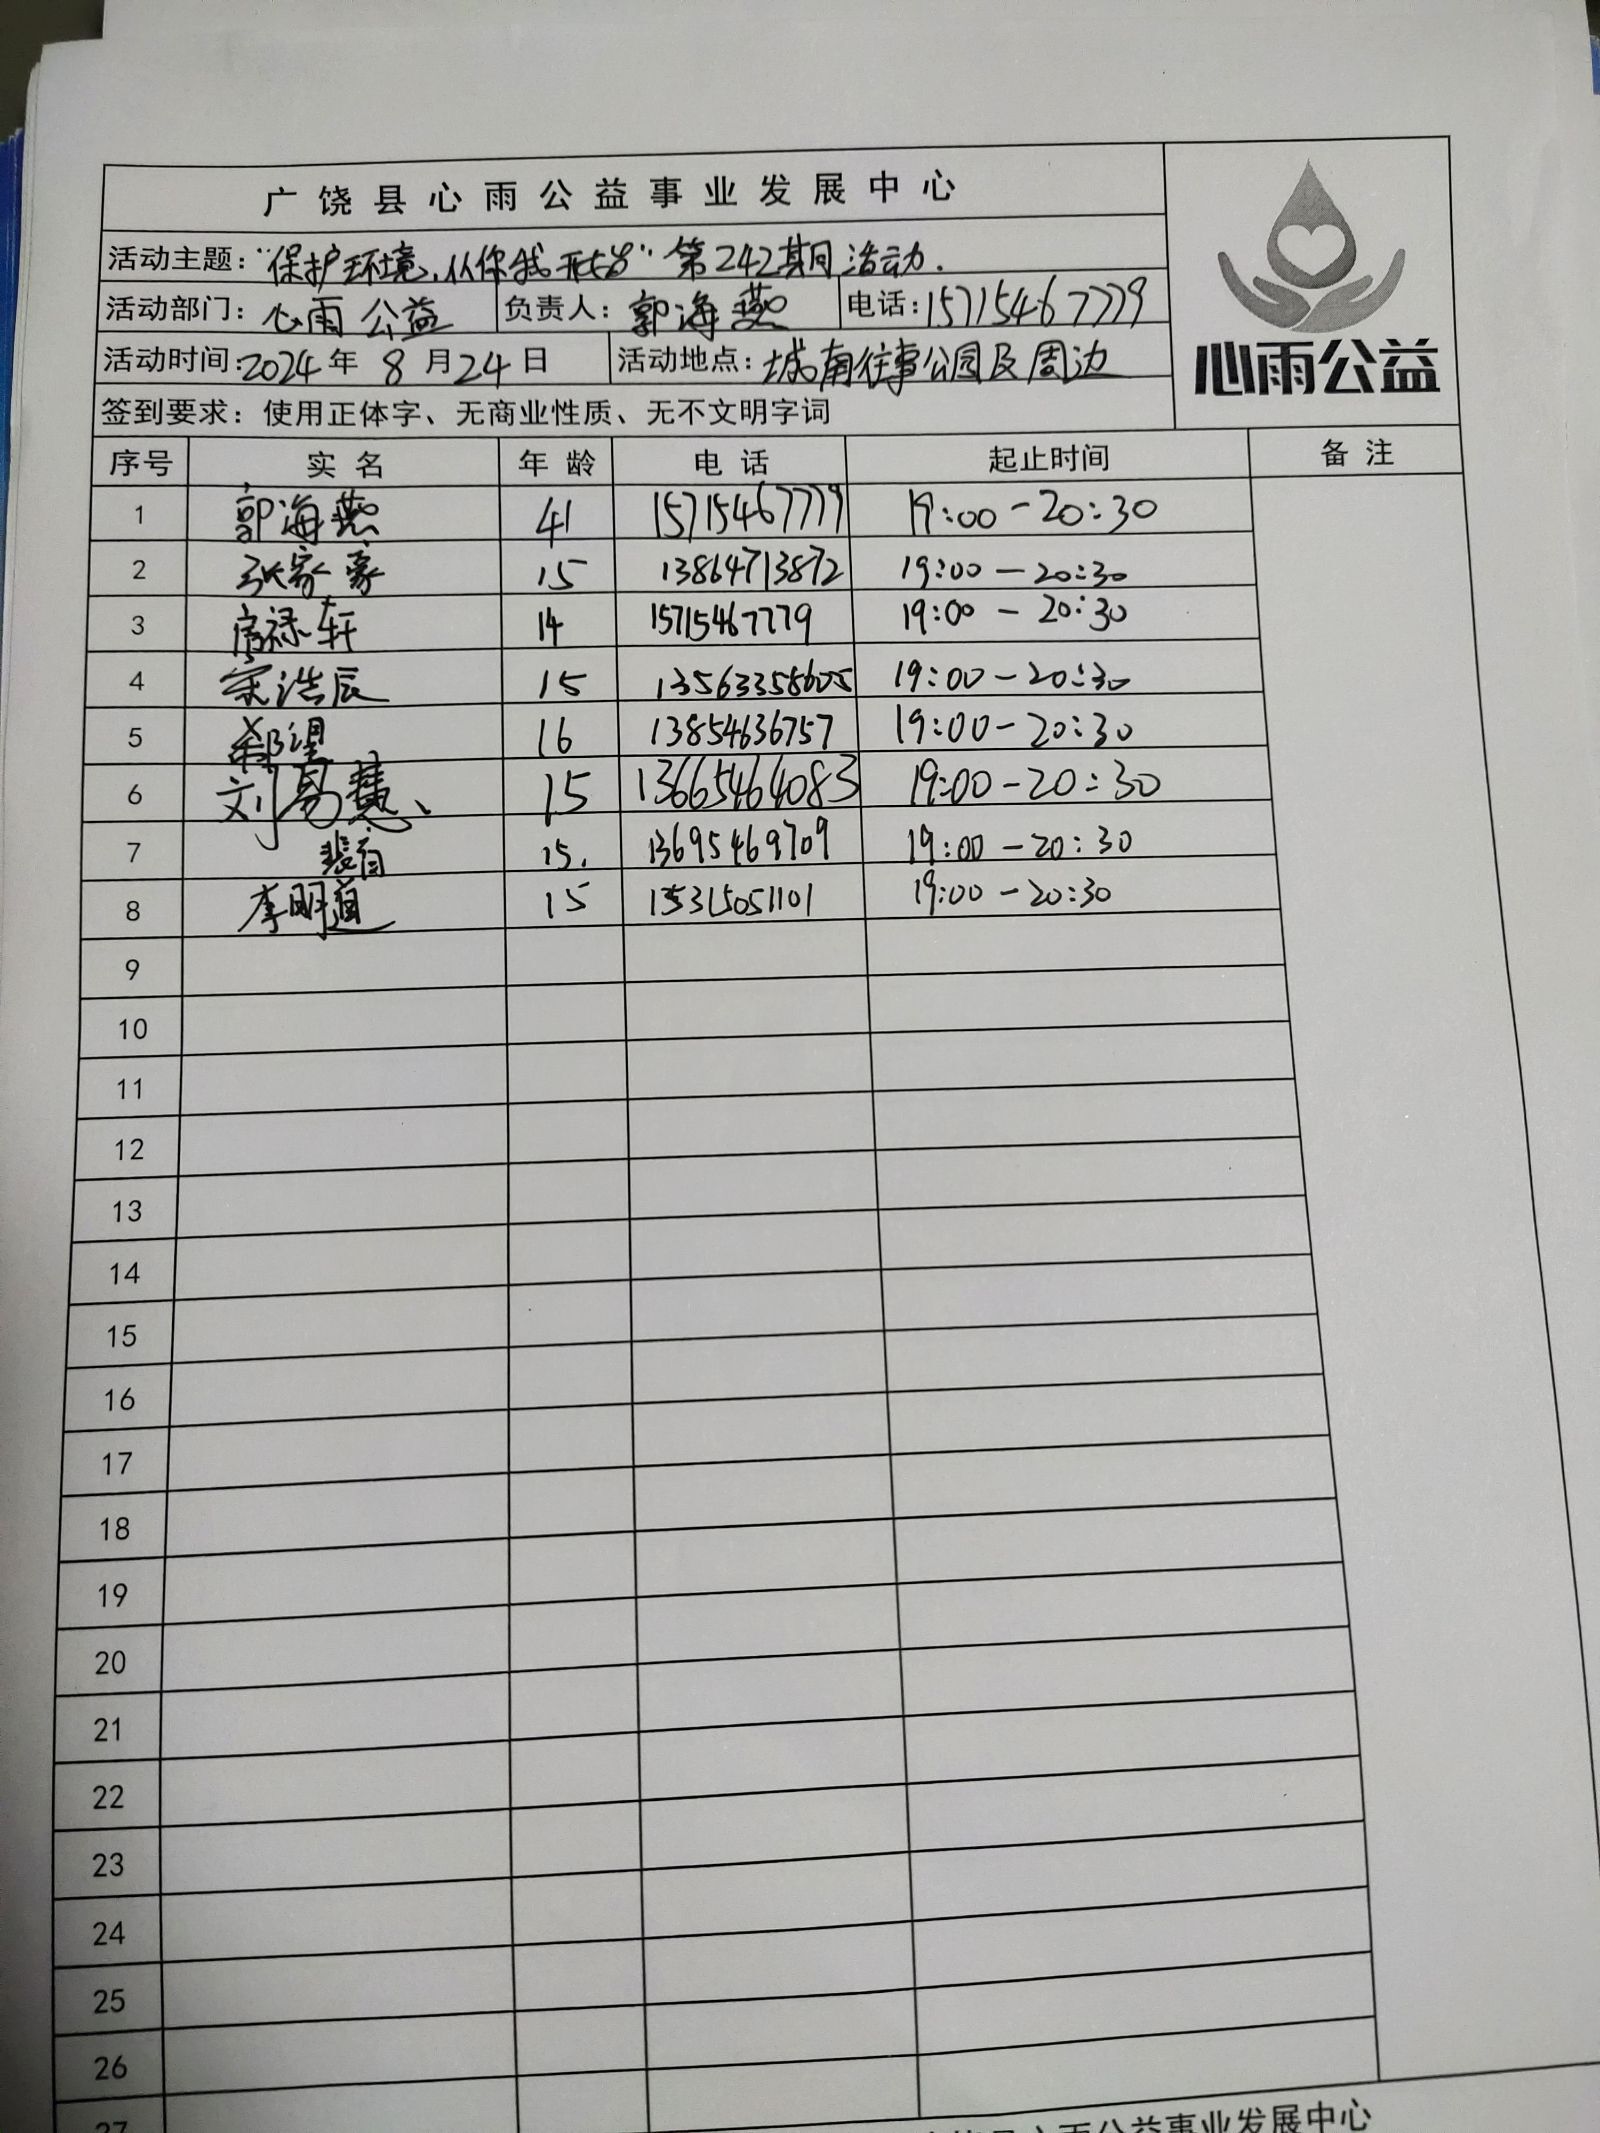 广饶县心雨公益事业发展中心
活动主题："保护环境,从你我开始"第242期活动.
活动部门：心雨公益 负责人：郭海燕 电话：15715467779
活动时间：2024年8月24日 活动地点：城南往事公园及周边
签到要求：使用正体字、无商业性质、无不文明字词
心雨公益
序号 实名 年龄 电话 起止时间 备注
1 郭海燕 41 15715467779 19:00-20:30
2 张家豪 15 13864713872 19:00-20:30
3 房禄轩 14 15715467779 19:00-20:30
4 宋浩辰 15 13563358605 19:00-20:30
5 郗望 16 13854636757 19:00-20:30
6 刘易慧 15 13665464083 19:00-20:30
7 15. 13695469709 19:00-20:30
8 李明道 15 15315051101 19:00-20:30
9
10
11
12
13
14
15
16
17
18
19
20
21
22
23
24
25
26
27
心雨公益事业发展中心